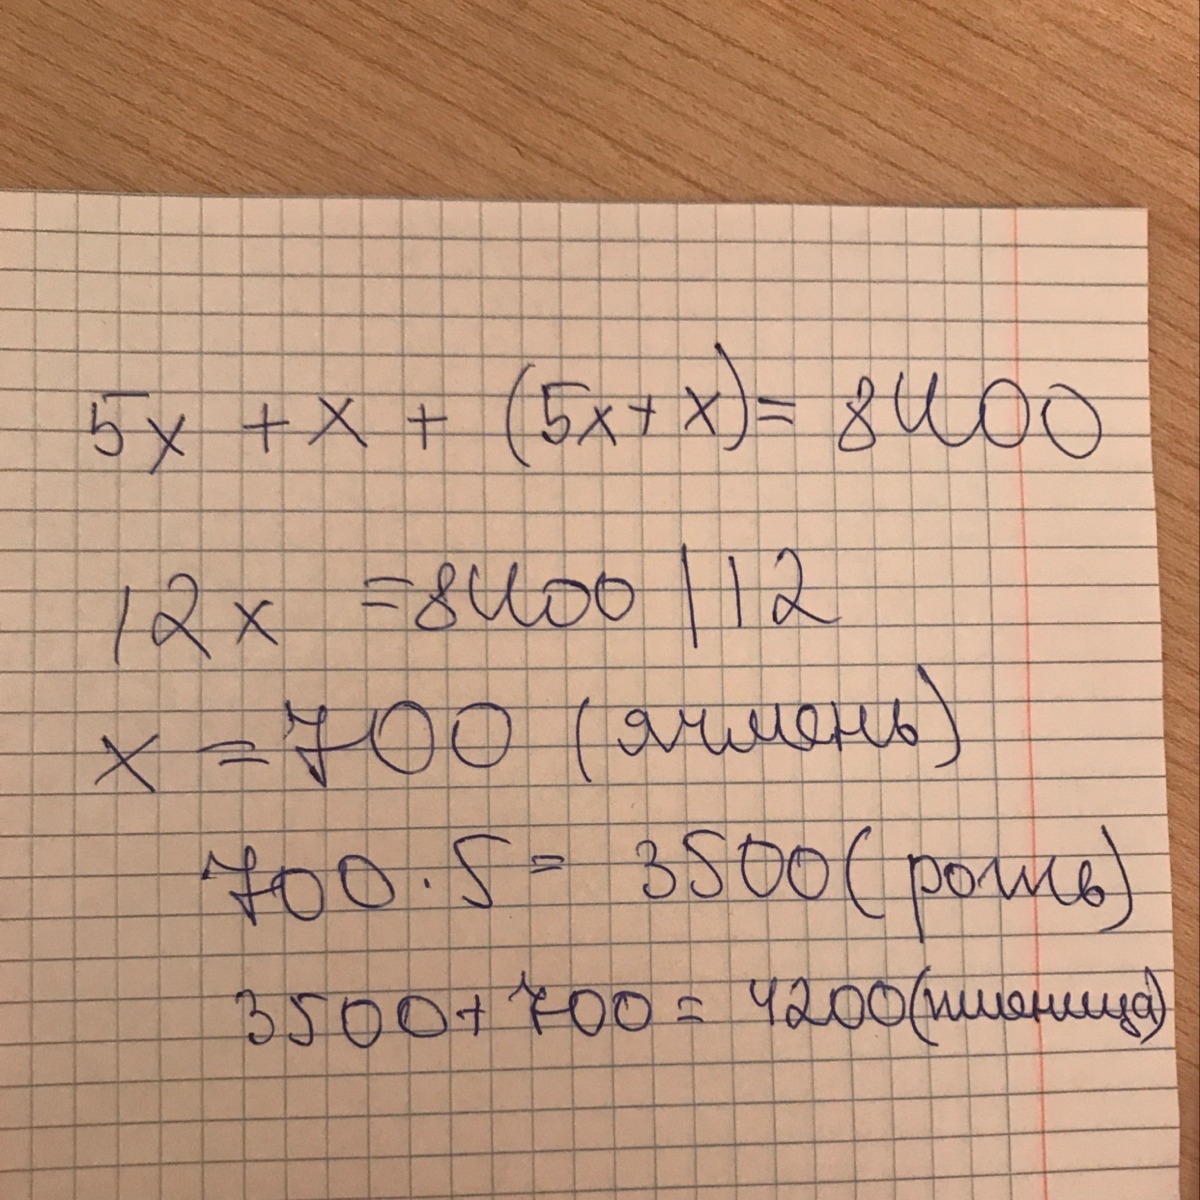 5x + x + (5x + x) = 8400
12x = 8400 | 12
x = 700 (ячмень)
700 · 5 = 3500 (рожь)
3500 + 700 = 4200 (пшеница)